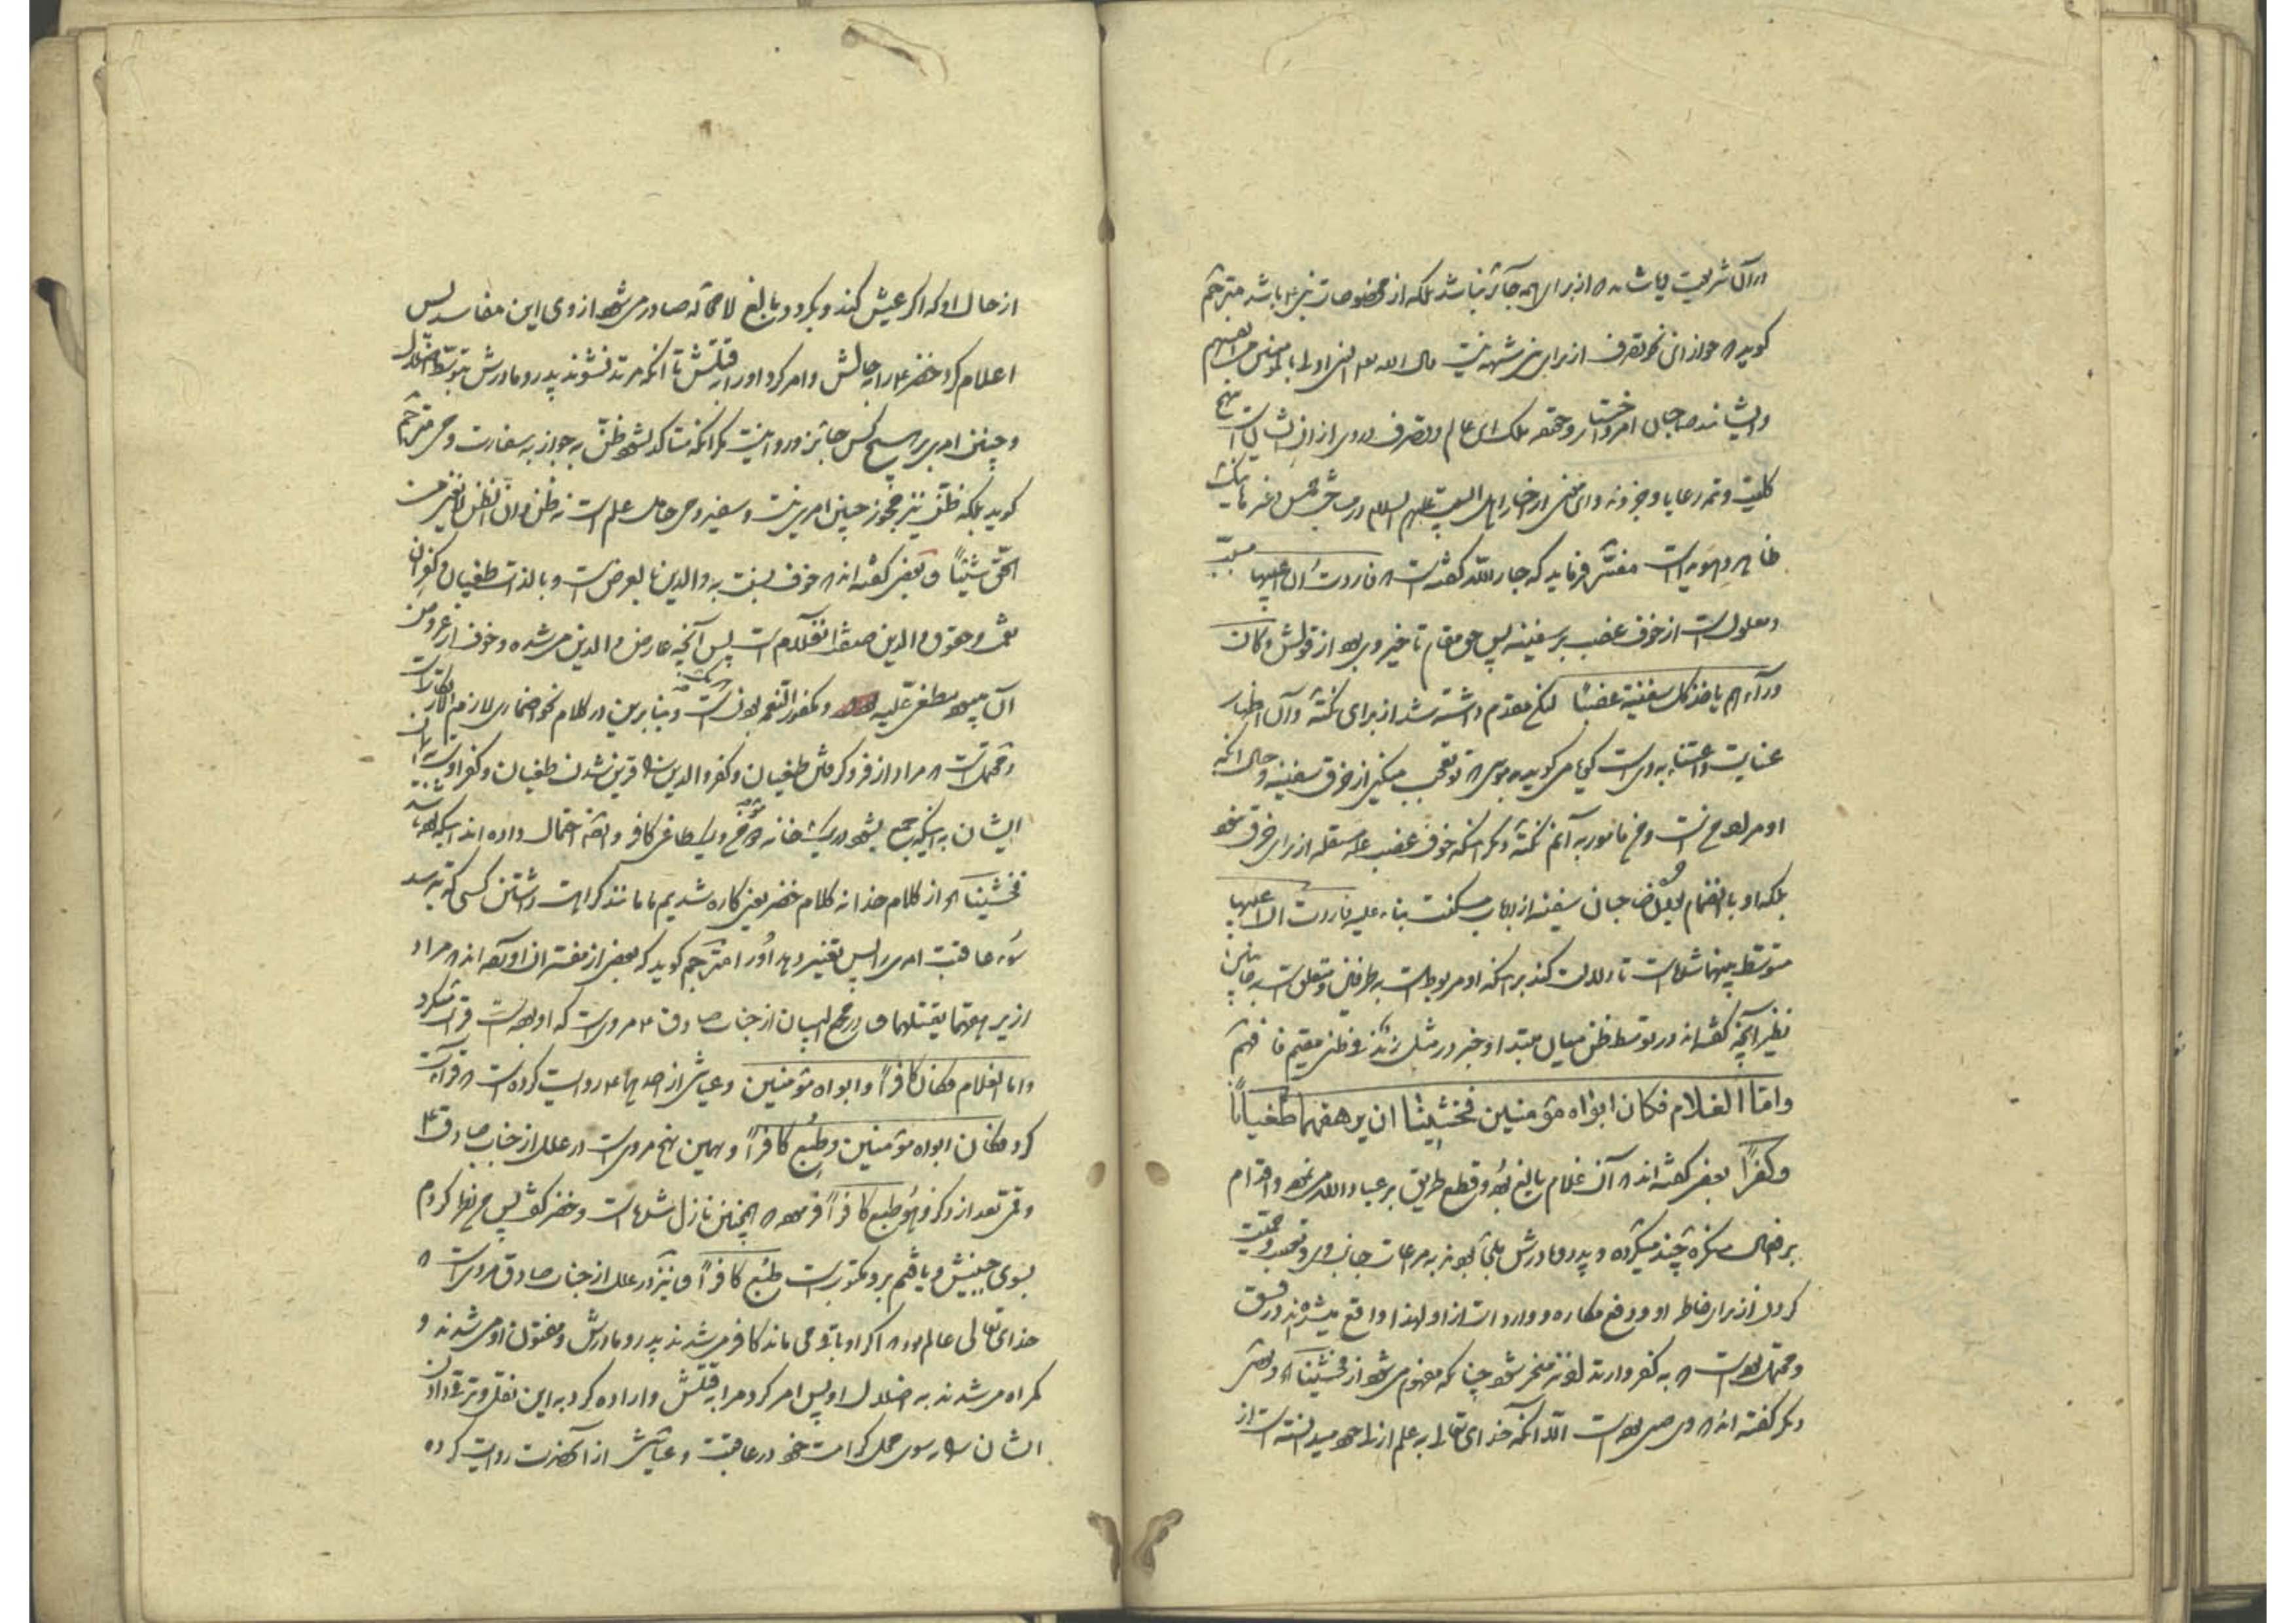 در آن شریعت از برای همه جائز نباشد بلکه از مخصوصات نبی باشد مترجم
کوید جواز این نحو تصرف از برای نبی شبهه نیست قال الله النبی اولی بالمؤمنین من انفسهم
و ایشانند صاحبان امر و ملک این عالم و تصرف در وی از ایشان است
کلیت و تمه رعایا و اخبار اهل البیت علیهم السلام در خمس و غیر
ظاهر و هویداست مفسر فرماید که جار الله کفته است فاردت ان اعیبها مسبب
و معلول است از خوف غضب بر سفینه پس حق مقام تاخیر وی بود از قولش و کان
ورآءهم یاخذ کل سفینة غضبًا لیکن مقدم داشته شد از برای نکته و آن اظهار
عنایت و اعتناء به وی است کویا می کوید به موسی تو تعجب میکنی از خرق سفینه و حال آنکه
او مرا صلاح است و من مامور به آنم نکته دیکر اینکه خوف غضب علة مستقله از برای خرق نبود
بلکه او با انضمام بودن صاحبان سفینه از ارباب مسکنت بناء علیه فاردت ان اعیبها
متوسط بینهما شده است تا دلالت کند بر اینکه او مربوط است به طرفین و متعلق است به جانبین
نظیر آنچه کفته اند در توسط ظن میان مبتدا و خبر در مثل زید ظنی مقیم فافهم
واما الغلام فکان ابواه مؤمنین فخشینا ان یرهقهما طغیانًا
وکفرًا بعضی کفته اند آن غلام بالغ بود و قطع طریق بر عباد الله می نمود و اقدام
بر افعال منکره چند میکرده و پدر و مادرش ملجأ بودند به مراعات جانب وی و تعصب و حمیت
کردن از برای خاطر او و دفع مکاره و واردات از او لهذا واقع میشدند در فسق
و محتمل بود است به کفر و ارتداد نیز منجر شود چنانکه مفهوم می شود از فخشینا و بعضی
دیکر کفته اند وی صبی بود است الا آنکه خدای تعالی به علم ازلی خود میدانسته است از
از حال او که اکر عیش کند و بکردد بالغ لا محاله صادر می شود از وی این مفاسد پس
اعلام کرد خضر را به حالش و امر کرد او را به قتلش تا آنکه مرتد نشوند پدر و مادرش بتوسط اضلال
و چنین امری بر هیچ کس جائز و روا نیست مکر آنکه متاکد بشود ظن به جواز به سفارت وحی مترجم
کوید بلکه ظن نیز مجوز چنین امری نیست و سفیر وحی حامل علم است نه ظن و ان الظن لا یغنی من
الحق شیئًا و بعضی کفته اند خوف نسبت به والدین بالعرض است و بالذات طغیان و کفران
نعمت و حقوق والدین صفة غلام است پس آنچه عارض والدین می شده و خوف از عروض
آن میبود مطغی علیه و مکفور النعم بودن است و بنابرین در کلام نحو اضماری لازم
و محتمل است مراد از فرو کرفتن طغیان و کفر والدین را قرین شدن طغیان و کفر او است با ایمان
ایشان به اینکه جمع بشود در یک خانه دو مؤمن و یک طاغی کافر و بعضی احتمال داده اند اینکه بوده باشد
فخشینا از کلام خدا نه کلام خضر یعنی کاره شدیم ما مانند کراهت داشتن کسی که بترسد
سوء عاقبت امری را پس تغییر دهد او را مترجم کوید که بعضی از مفسران را مراد
از یرهقهما یقتلهما و در مجمع البیان از جناب صادق مروی است که او بوده است قرائت میکرد
واما الغلام فکان کافرًا وابواه مؤمنین وعیاشی از احدهما روایت کرده است قراءت
کرد فکان ابواه مؤمنین وطبع کافرًا و بهمین نهج مروی است در علل از جناب صادق
و قمی بعد از ذکر وهو طبع کافرًا فرموده همچنین نازل شده است و خضر کفت پس من نظر کردم
بسوی جبینش و یافتم بر او مکتوب است طبع کافرًا و نیز در علل از جناب صادق مروی است
خدای تعالی عالم بود اکر او باقی می ماند کافر می شدند پدر و مادرش و مفتون او می شدند و
کمراه می شدند به ضلال او پس امر کرد مرا به قتلش و اراده کرد به این نقل و ترقی دادن
ایشان را به سوی محل کرامت خود در عاقبت و عیاشی از آنحضرت روایت کرده